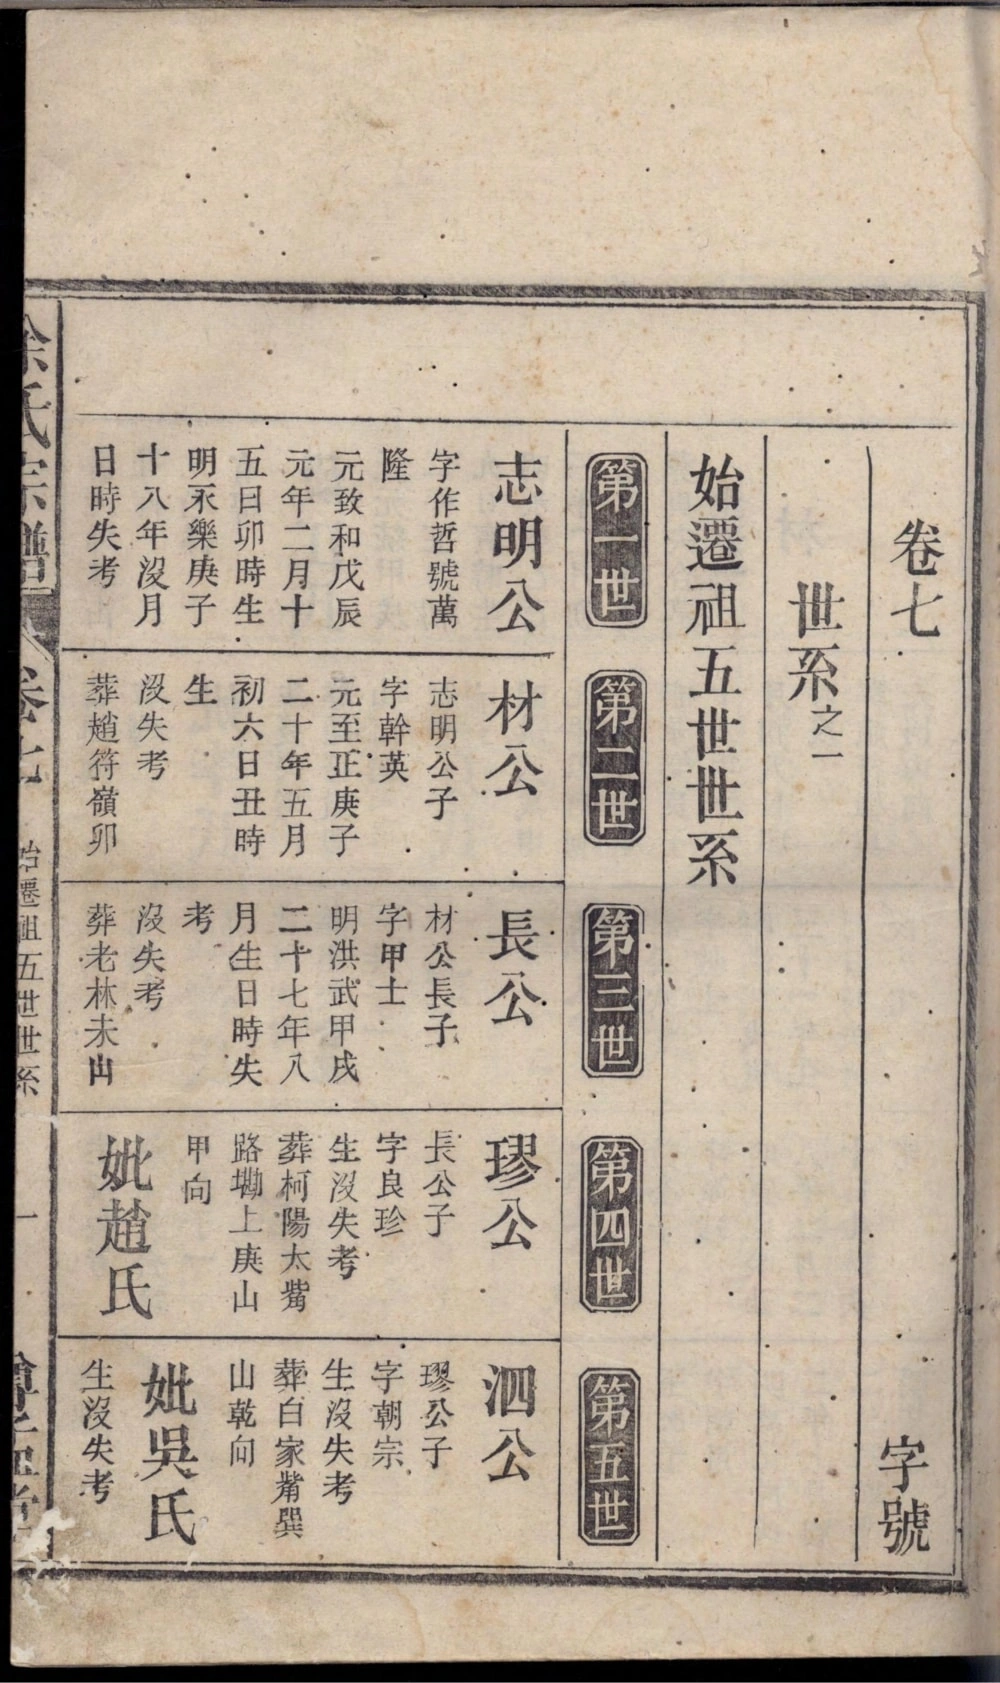 卷七
字號
世系之一
始遷祖五世世系
第一世
第二世
第三世
第四世
第五世
志明公
字作哲號萬
隆
元致和戊辰
元年二月十
五日卯時生
明永樂庚子
十八年沒月
日時失考
材公
志明公子
字幹英
元至正庚子
二十年五月
初六日丑時
生
沒失考
葬趙符嶺卯
長公
材公長子
字甲士
明洪武甲戌
二十七年八
月生日時失
考
沒失考
葬老林未山
璆公
長公子
字良珍
生沒失考
葬柯陽太觜
路墈上庚山
甲向
妣趙氏
泗公
璆公子
字朝宗
生沒失考
葬白家觜巽
山乾向
妣吳氏
生沒失考
氏宗譜
卷七
始遷祖五世世系
一